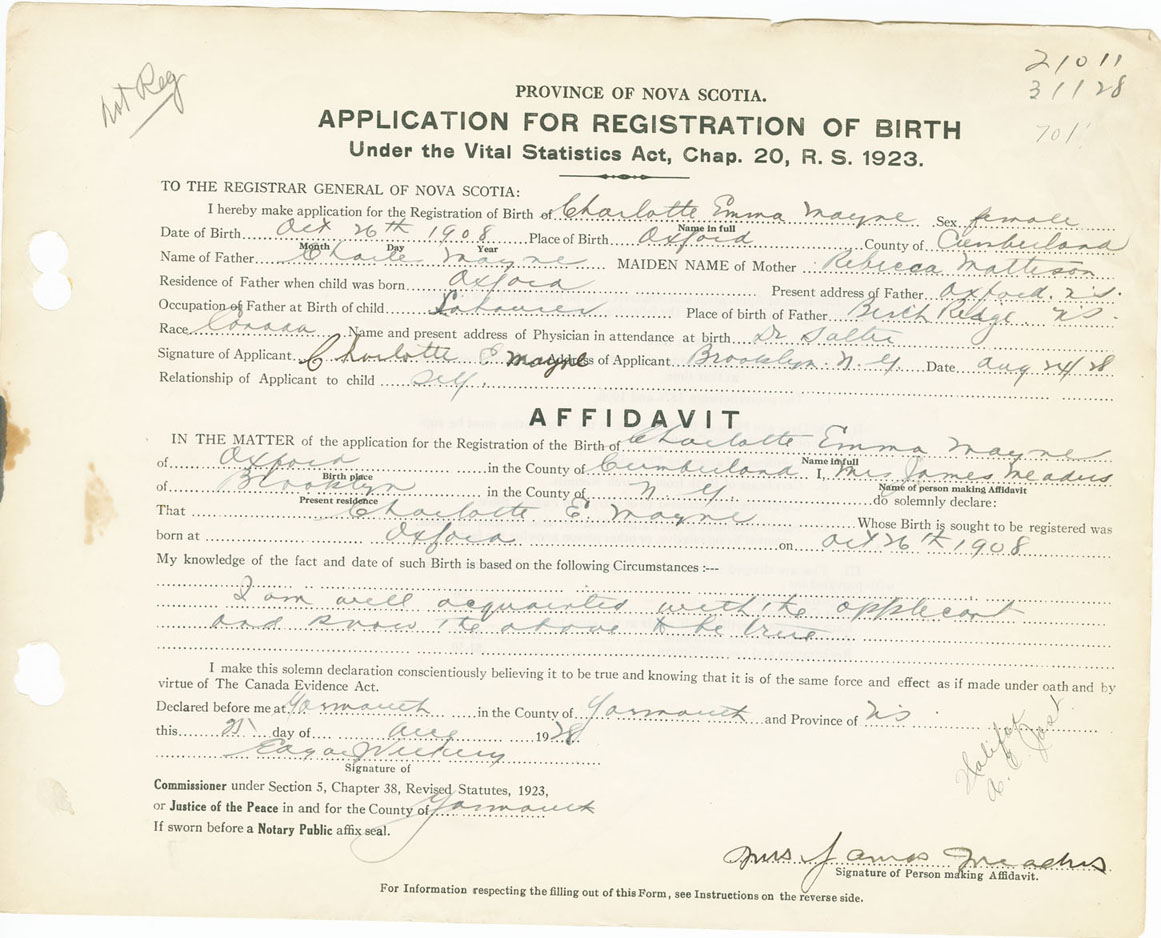 Not Reg
21011
31128
701
PROVINCE OF NOVA SCOTIA.
APPLICATION FOR REGISTRATION OF BIRTH
Under the Vital Statistics Act, Chap. 20, R. S. 1923.
TO THE REGISTRAR GENERAL OF NOVA SCOTIA:
I hereby make application for the Registration of Birth of Charlotte Emma Mayne Sex female
Name in full
Date of Birth Oct 26th 1908 Place of Birth Oxford County of Cumberland
Month Day Year
Name of Father Charle Mayne MAIDEN NAME of Mother Rebecca Matteson
Residence of Father when child was born Oxford Present address of Father Oxford. N.S.
Occupation of Father at Birth of child Labourer Place of birth of Father Birch Ridge N.S.
Race Canada Name and present address of Physician in attendance at birth Dr
Signature of Applicant Charlotte E Mayne Address of Applicant Brooklyn. N.Y. Date Aug 24/28
Relationship of Applicant to child Self.
AFFIDAVIT
IN THE MATTER of the application for the Registration of the Birth of Charlotte Emma Mayne
Name in full
of Oxford in the County of Cumberland I, Mrs James Meaders
Birth place Name of person making Affidavit
of Brooklyn in the County of N.Y. do solemnly declare:
Present residence
That Charlotte E. Mayne Whose Birth is sought to be registered was
born at Oxford on Oct 26th 1908
My knowledge of the fact and date of such Birth is based on the following Circumstances :---
I am well acquainted with the applicant
and know the above to be true
I make this solemn declaration conscientiously believing it to be true and knowing that it is of the same force and effect as if made under oath and by
virtue of The Canada Evidence Act.
Declared before me at Yarmouth in the County of Yarmouth and Province of NS
this day of Aug 1928
Signature of
Commissioner under Section 5, Chapter 38, Revised Statutes, 1923,
or Justice of the Peace in and for the County of Yarmouth
If sworn before a Notary Public affix seal.
Halifax
Mrs James Meaders
Signature of Person making Affidavit.
For Information respecting the filling out of this Form, see Instructions on the reverse side.